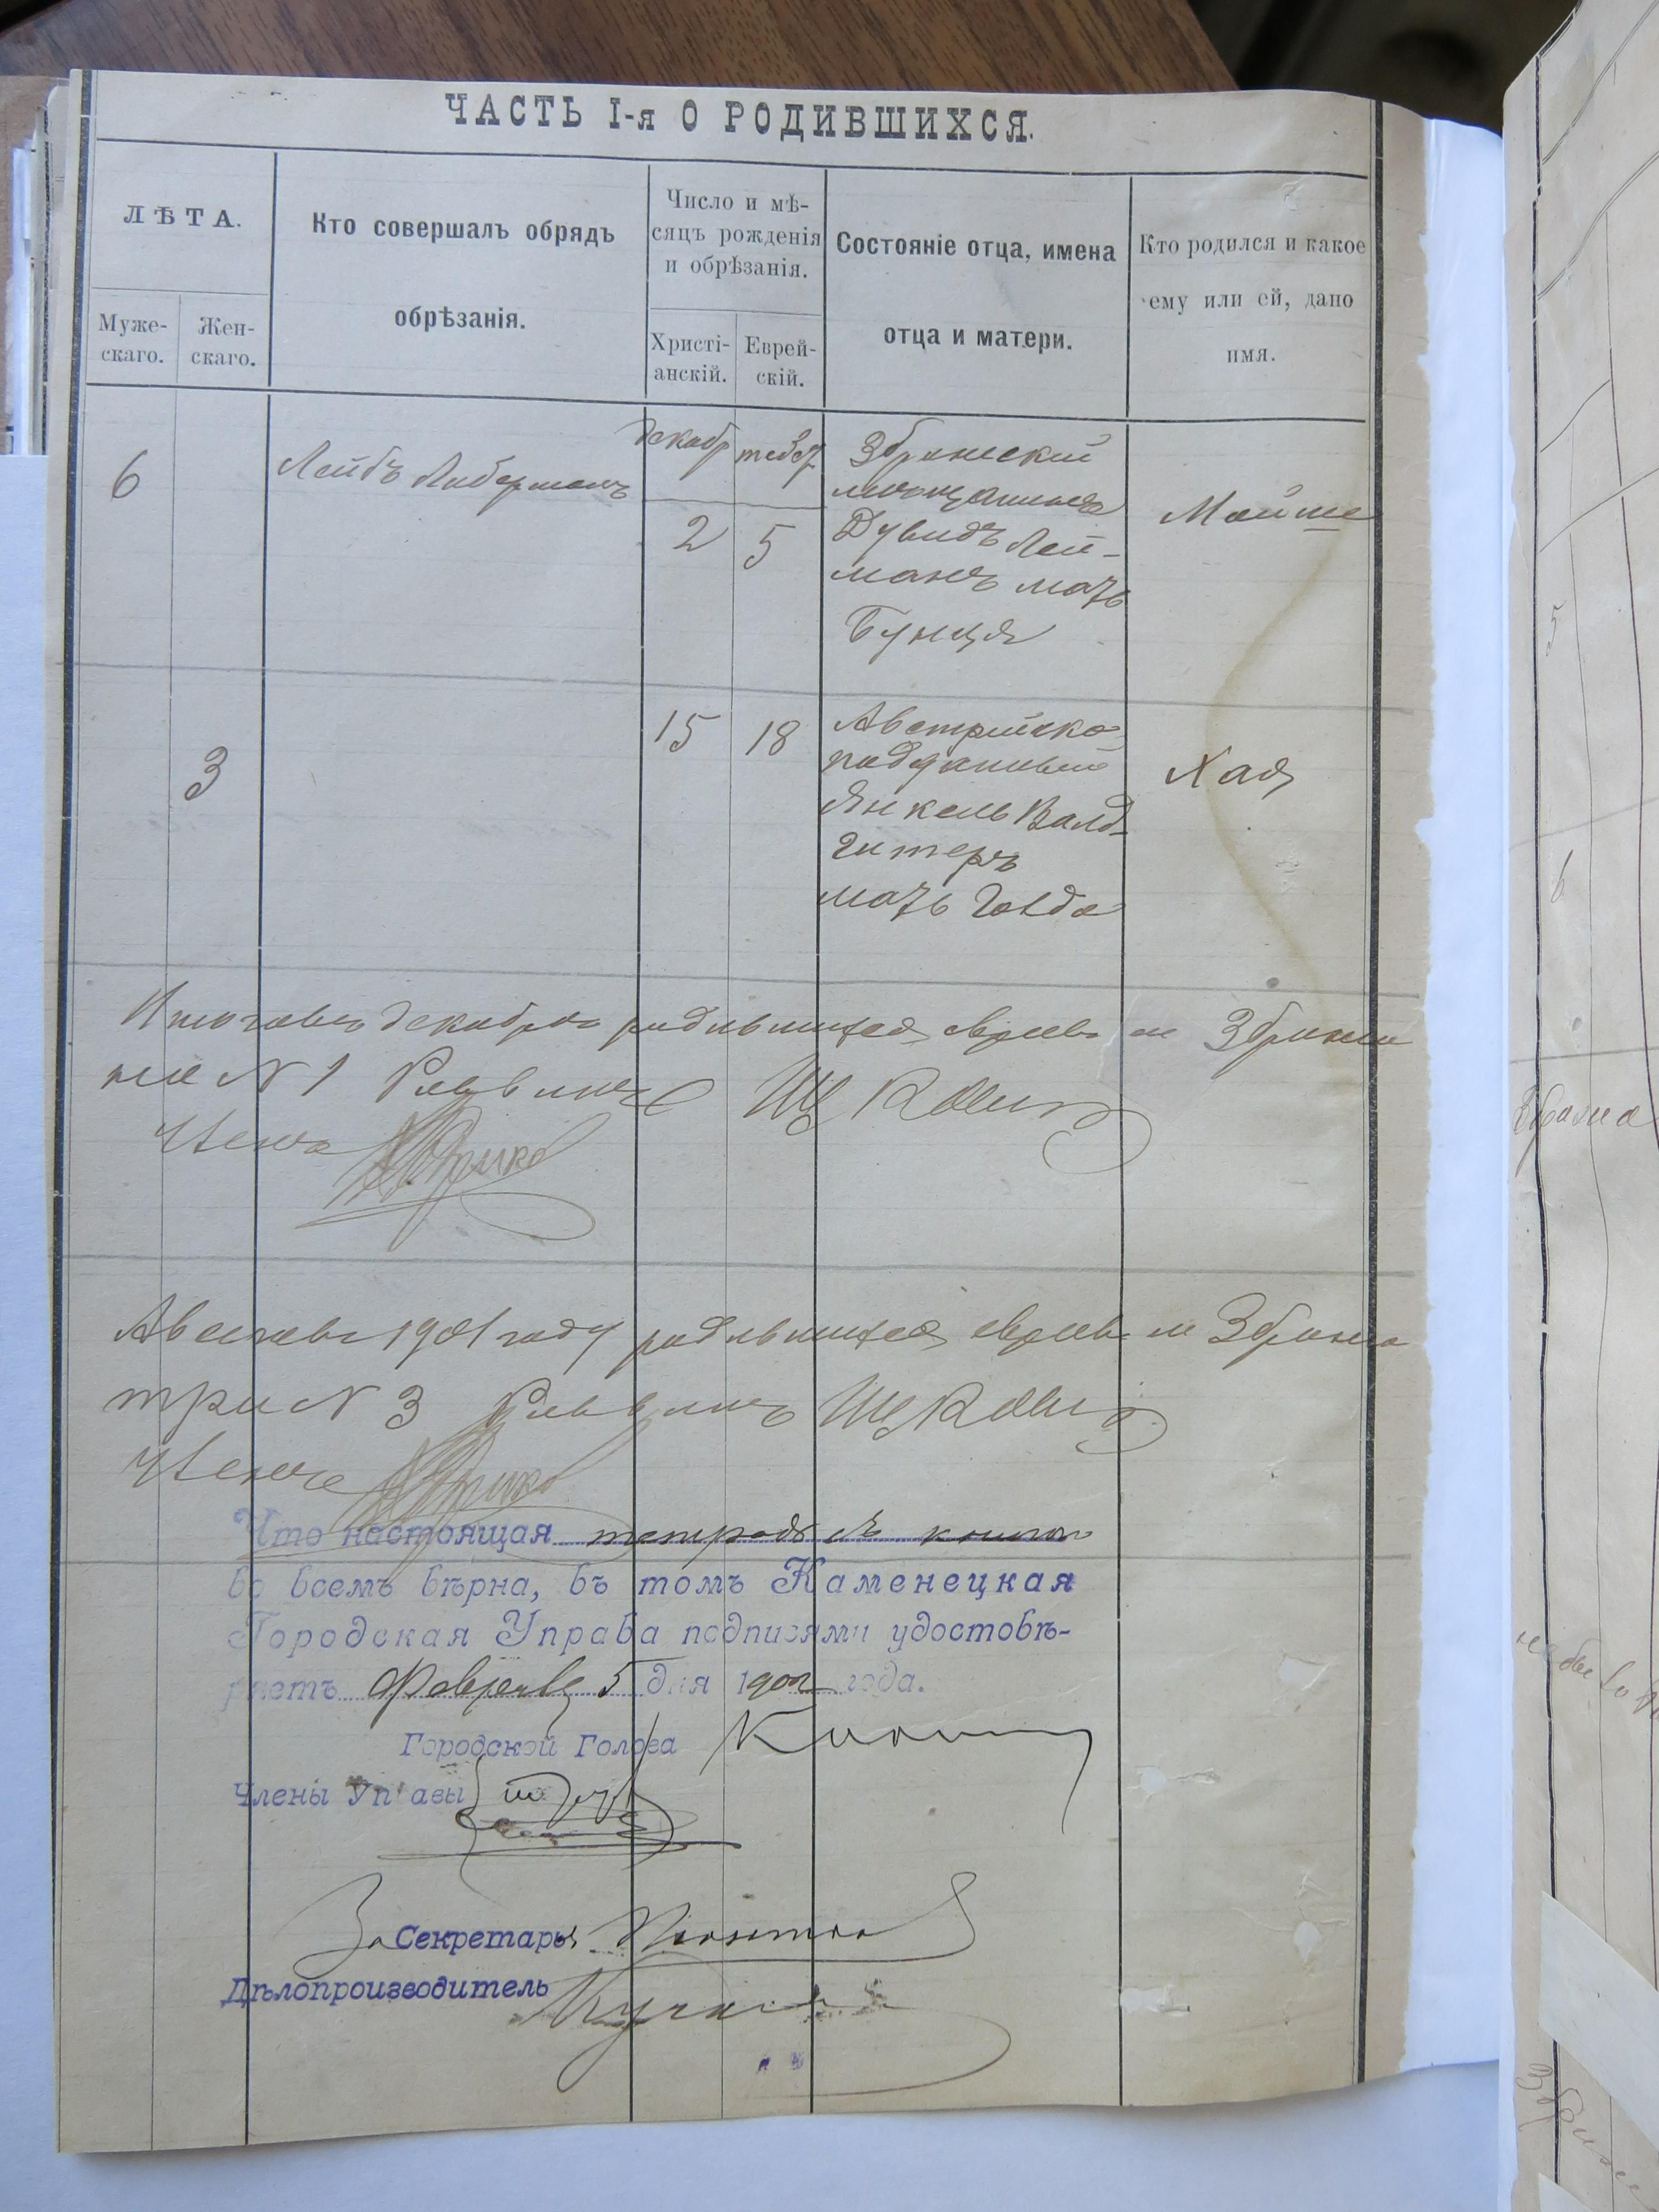 ЧАСТЬ I-я О РОДИВШИХСЯ.
ЛѢТА.
Муже-
скаго.
Жен-
скаго.
Кто совершалъ обрядъ
обрѣзанія.
Число и мѣ-
сяцъ рожденія
и обрѣзанія.
Христі-
анскій.
Еврей-
скій.
Состояніе отца, имена
отца и матери.
Кто родился и какое
ему или ей, дано
имя.
6
Лейбъ Либерманъ
декабр
2
5
мѣщанинъ
Дувидъ Лей-
манъ мать
Бунця
Мойше
3
15
18
Австрійско
подданный
Янкель Валд-
гитеръ
мать Голда
Хая
декабрѣ родившихся евреевъ
№ 1 Раввинъ
Члена
1901 году родившихся евреевъ
три № 3 Раввинъ
Члена
Что настоящая тетрадь съ книгою
во всемъ вѣрна, въ томъ Каменецкая
Городская Управа подписями удостовѣ-
ряетъ Февраля 5 дня 1902 года.
Городской Голова
Члены Управы
За Секретаря
Дѣлопроизводитель